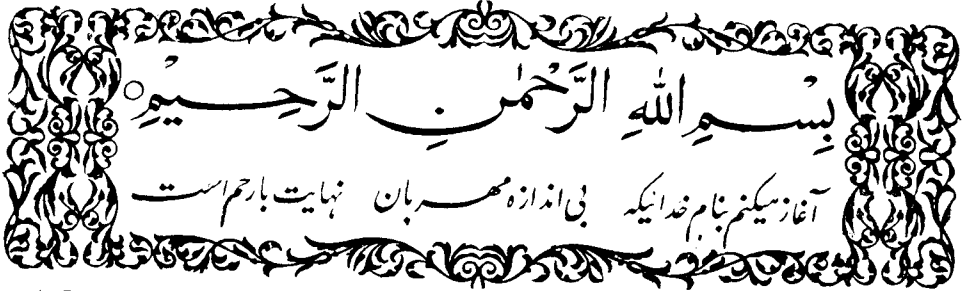 بِسْمِ اللهِ الرَّحْمٰنِ الرَّحِیْمِ ○
آغاز میکنم بنام خدائیکه بی اندازه مهربان نهایت بارحم است